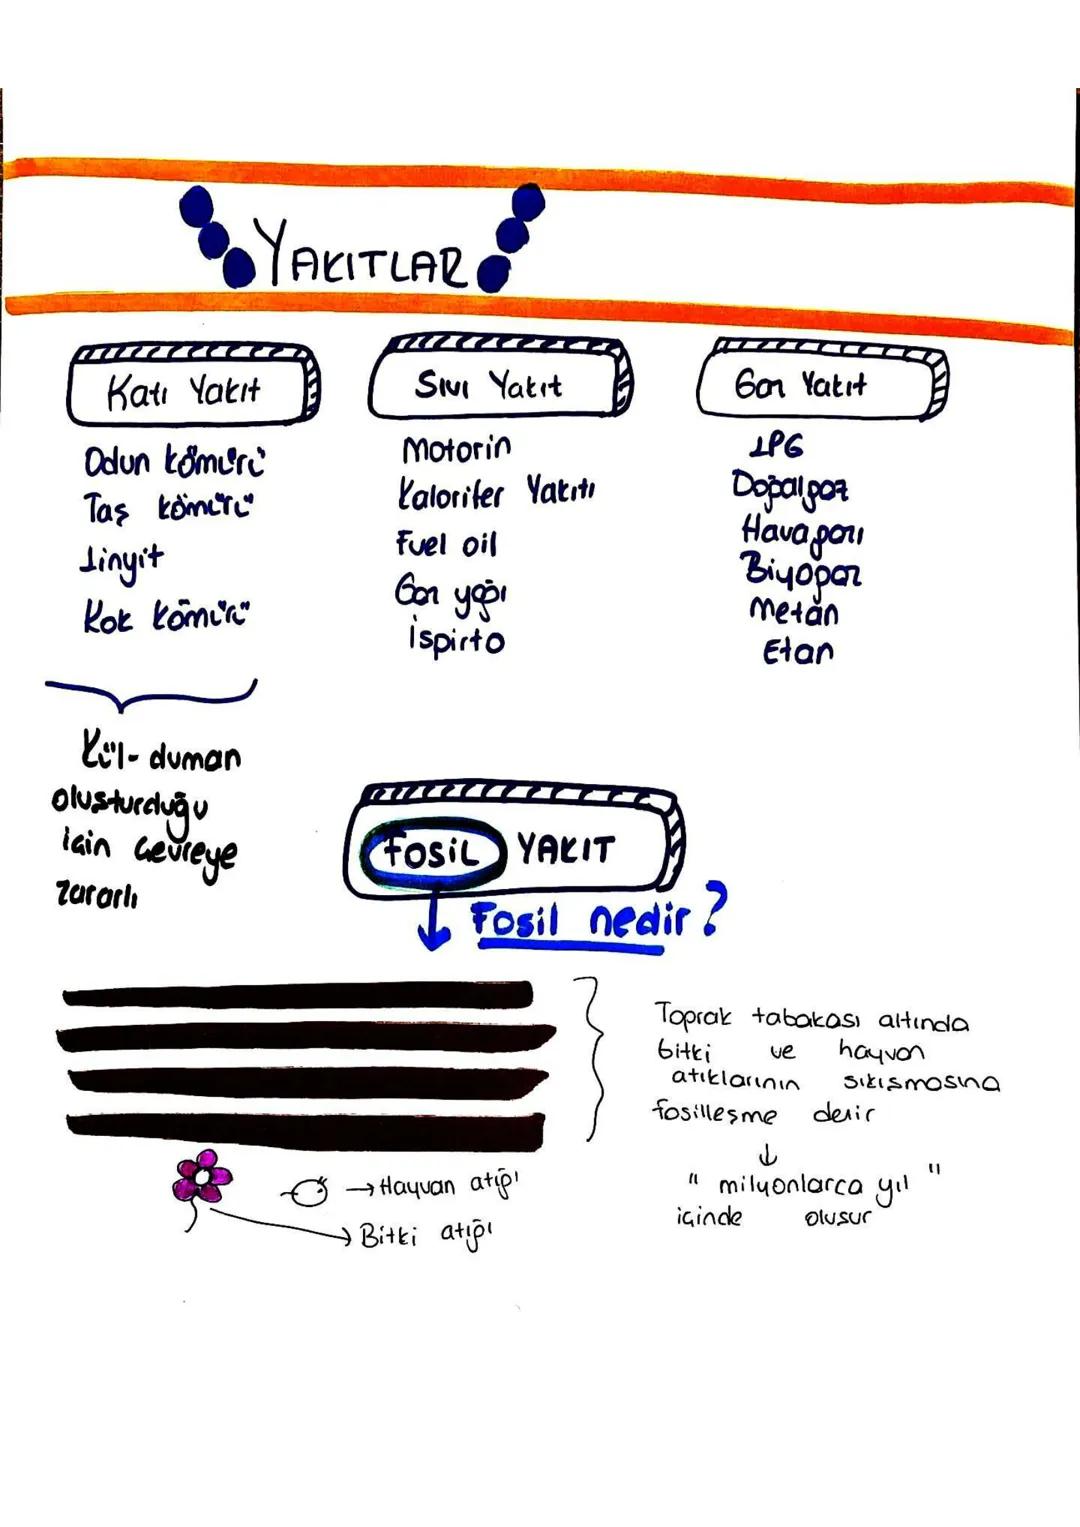 YAKITLAR
Katı Yakıt
Odun kömürü
Taş kömürü
Linyit
Kok kömürü
Kül-duman
oluşturduğu
için çevreye
zararlı
Sıvı Yakıt
Motorin
Kalorifer Yakıtı
Fuel oil
Gaz yağı
İspirto
Gaz Yakıt
LPG
Doğalgaz
Havagazı
Biyogaz
Metan
Etan
FOSİL YAKIT
Fosil nedir?
Toprak tabakası altında
bitki ve hayvan
atıklarının sıkışmasına
fosilleşme denir
"milyonlarca yıl"
içinde oluşur
→ Hayvan atığı
→ Bitki atığı